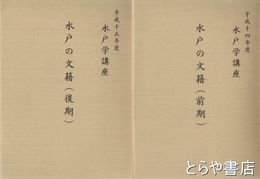 平成十四年度
水戸学講座
水戸の文籍(前期)
平成十五年度
水戸学講座
水戸の文籍(後期)
とらや書店